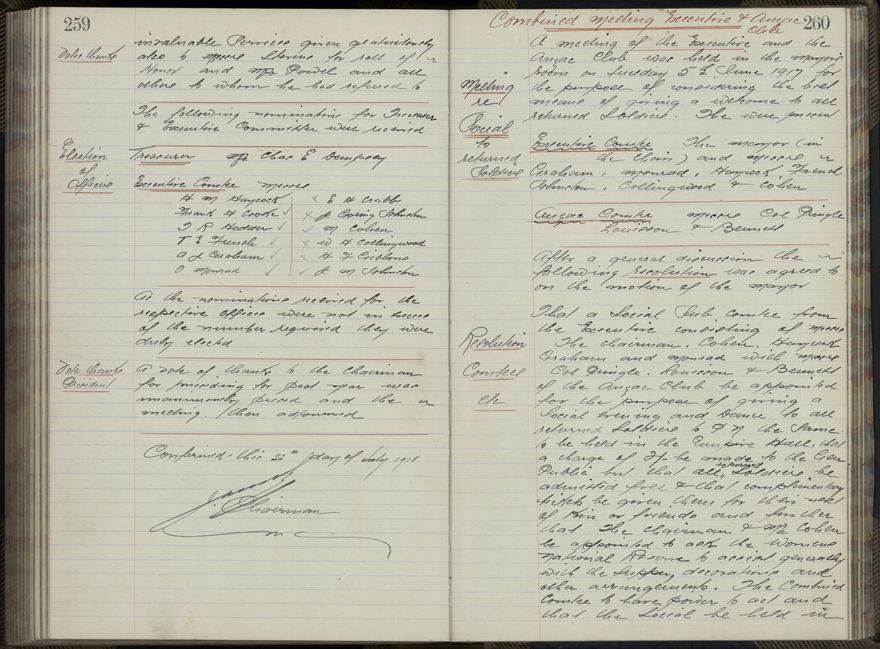 259
Vote thanks
invaluable services given gratuitously
also to Messrs Stevens for roll of
Honor and Mr Powell and all
others to whom he had referred to
The following nominations for Treasurer
& Executive Committee were received
Election
of
Officers
Treasurer Mr Chas E Dempsey
Executive Comtee Messrs
H M Haycock
Frank H Cooke ✓
J R Hodder ✓
T E French ✓
A J Graham ✓
O Monrad ✓
x E H Crabb
x J Goring Johnston
✓ M Cohen
x W H Collingwood
x H F Gibbons
✓ J M Johnston
As the nominations received for the
respective offices were not in excess
of the number required they were
duly elected
Vote thanks
President
A vote of thanks to the Chairman
for presiding for past year was
unanimously passed and the
meeting then adjourned
Confirmed this 22nd day of July 1918
Chairman
260
Combined Meeting Executive & Anzac
Club
Meeting
re
Social
to
returned
Soldiers
A meeting of the Executive and the
Anzac Club was held in the mayors
room on Tuesday 5th June 1917 for
the purpose of considering the best
means of giving a welcome to all
returned Soldiers. The were present
Executive Comtee The mayor (in
the Chair) and messrs
Graham, Monrad, Haycock, French
Johnston, Collingwood & Cohen
Anzac Comtee Messrs Col Pringle
Louisson & Bennett
After a general discussion the
following resolution was agreed to
on the motion of the mayor
Resolution
Comtee
etc
That a Social Sub Comtee from
the Executive consisting of messrs
The Chairman, Cohen, Haycock
Graham and Monrad with messrs
Col Pringle, Louisson & Bennett
of the Anzac Club be appointed
for the purpose of giving a
Social Evening and Dance to all
returned Soldiers to P N the Same
to be held in the Empire Hall, that
a charge of 2/- be made to the Gen
Public but that all returned Soldiers be
admitted free & that complimentary
tickets be given them for their next
of Kin or friends and further
that The Chairman & Mr Cohen
be appointed to ask the Womens
National Reserve to assist generally
with the Supper, decorations and
other arrangements. The Combined
Comtee to have power to act and
that the Social be held in